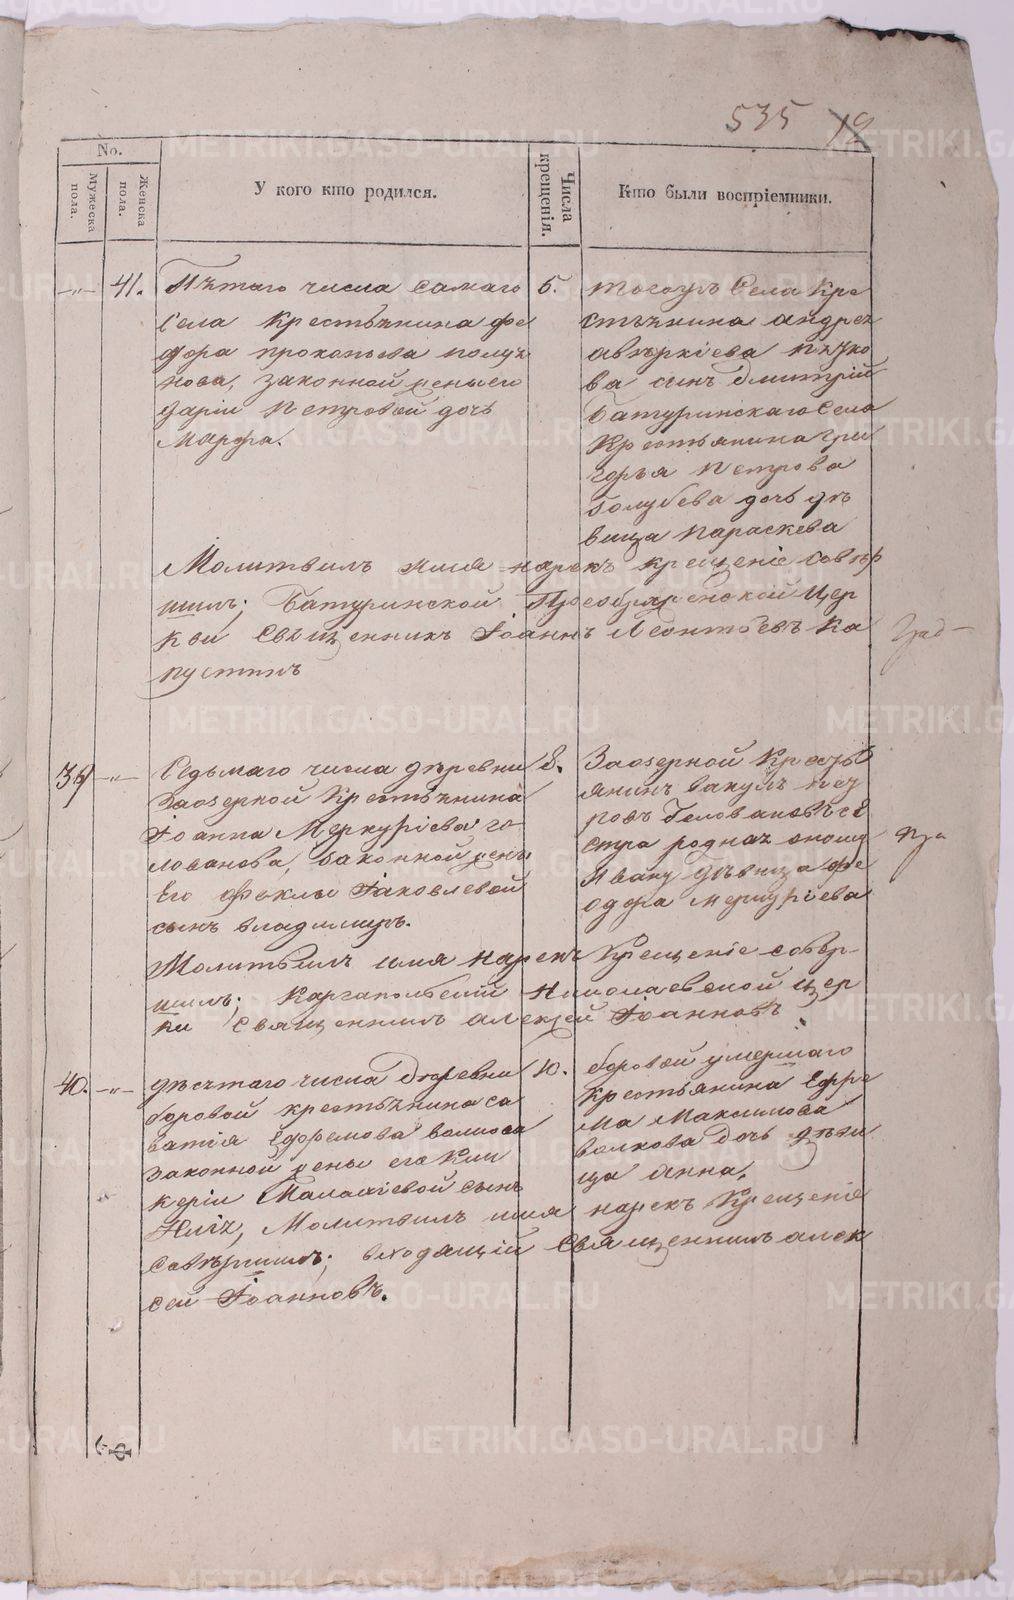 535 19
No.
Мужеска пола.
Женска пола.
У кого кто родился.
Числа крещенія.
Кто были воспріемники.
41. Пѣтаго числа самаго
села Крестьянина фе
дора прокопьева
нова, законной жены его
Дарьи Петровой дочь
Марфа.
5. тогожъ Села Кре
стьянина андрея
аверкіева
ва сынъ Дмитрій
Батуринскаго Села
Крестьянина Гри
горья Петрова
Голубева дочь дѣ
вица Параскева
Молитвилъ имя нарекъ крещеніе совер
шилъ; Батуринской Преображенской Цер
кви Священникъ Іоаннъ Леонтьевъ Ка
пустинъ
39 Седьмаго числа деревни
Заозерной Крестьянина
Іоанна Меркурьева го
лованова, законной жены
Его Феклы Іаковлевой
сынъ владимиръ.
8. Заозерной Кресть
янинъ Вакулъ
ровъ Головановъ се
стра родная оному
Ивану дѣвица фе
одора меркуріева
Молитвилъ имя нарекъ Крещеніе совер-
шилъ; Каргапольской Николаевской цер
кви Священникъ алексей Іоанновъ
40. десятаго числа Деревни
боровой крестьянина са
ватія Ефремова волкова
законной жены его Гли
керіи Малахіевой сынъ
Илія, Молитвилъ имя нарекъ Крещеніе
10. боровой умершаго
Крестьянина Ефре
ма Максимова
волкова дочь дѣви
ца Анна,
совершилъ; входящій Священникъ алек
сей Іоанновъ.
METRIKI.GASO-URAL.RU